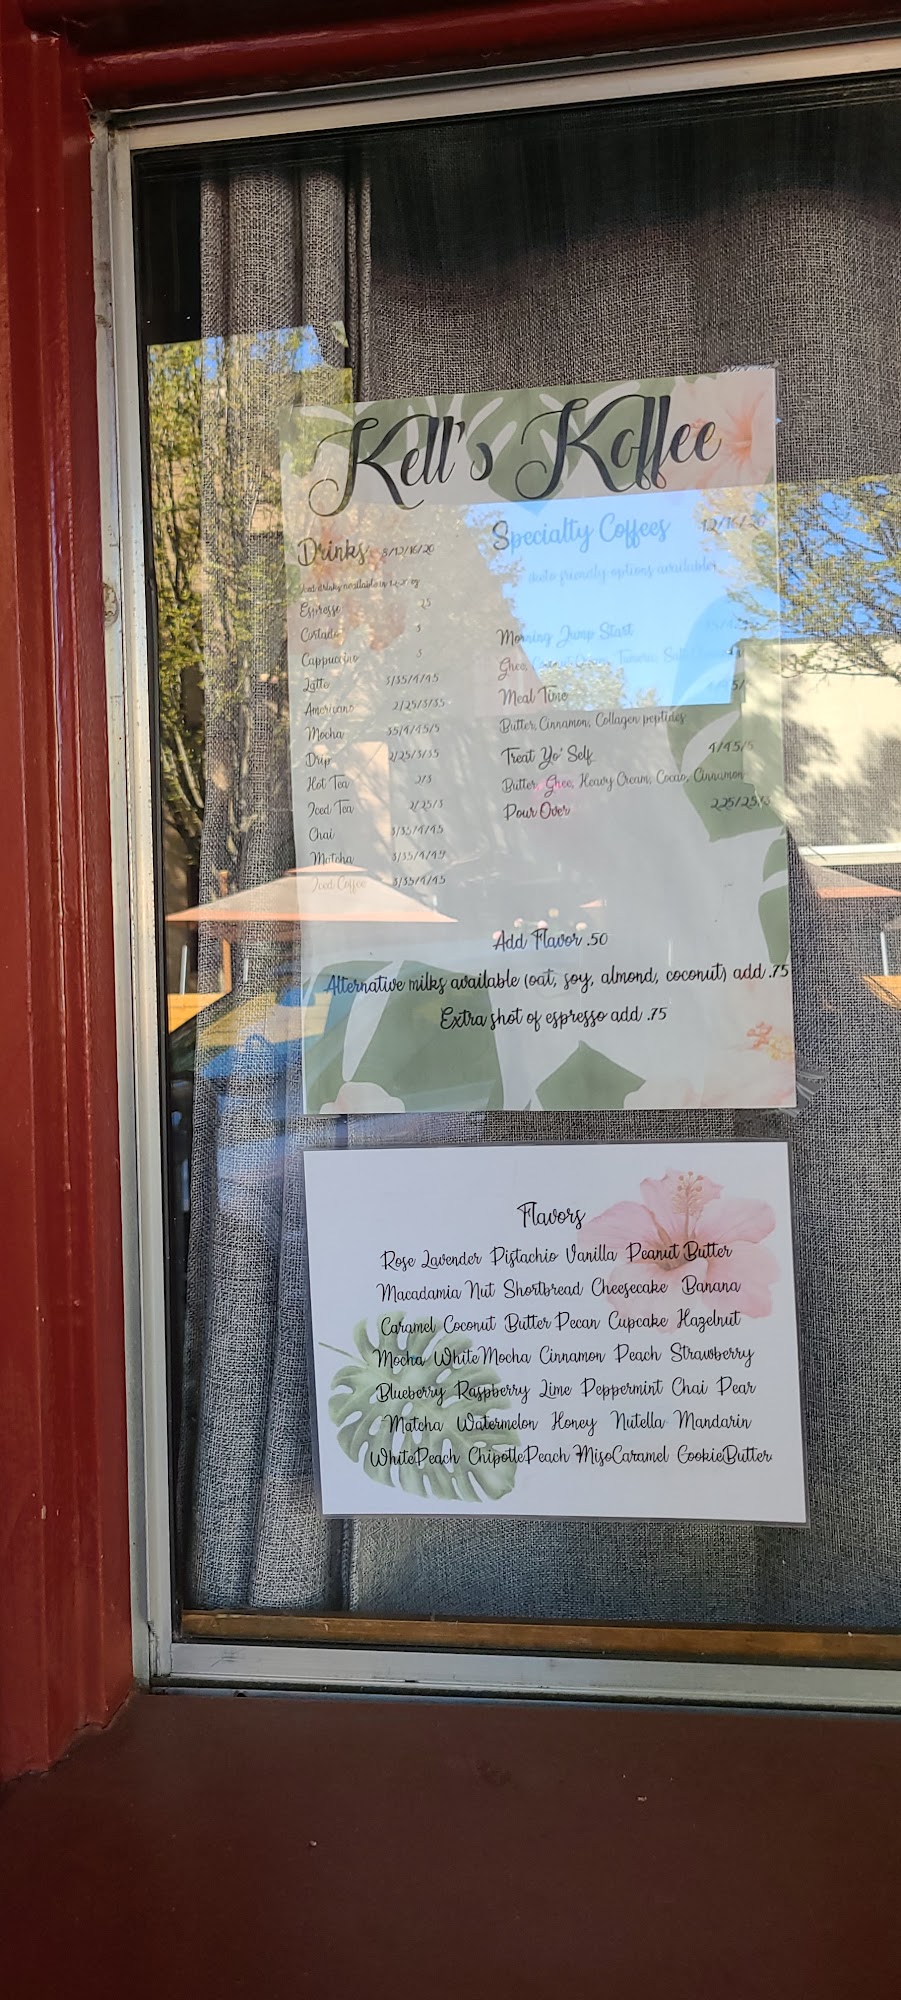 Kell's Koffee
Drinks 8/12/16/20
Iced drinks available in 12, 16, 20
Espresso 2.5
Cortado 3
Cappuccino 3
Latte 3/3.5/4/4.5
Americano 2/2.5/3/3.5
Mocha 3.5/4/4.5/5
Drip 2/2.5/3/3.5
Hot Tea 2/3
Iced Tea 2/2.5/3
Chai 3/3.5/4/4.5
Matcha 3/3.5/4/4.5
Iced Coffee 3/3.5/4/4.5
Specialty Coffees 12/16/20
friendly options available
Morning Jump Start
Ghee,
Meal Time
Butter, Cinnamon, Collagen peptides
Treat Yo' Self 4/4.5/5
Butter, Ghee, Heavy Cream, Cocao, Cinnamon
Pour Over
Add Flavor .50
Alternative milks available (oat, soy, almond, coconut) add .75
Extra shot of espresso add .75
Flavors
Rose Lavender Pistachio Vanilla Peanut Butter
Macadamia Nut Shortbread Cheesecake Banana
Caramel Coconut Butter Pecan Cupcake Hazelnut
Mocha White Mocha Cinnamon Peach Strawberry
Blueberry Raspberry Lime Peppermint Chai Pear
Matcha Watermelon Honey Nutella Mandarin
WhitePeach ChipotlePeach MisoCaramel CookieButter